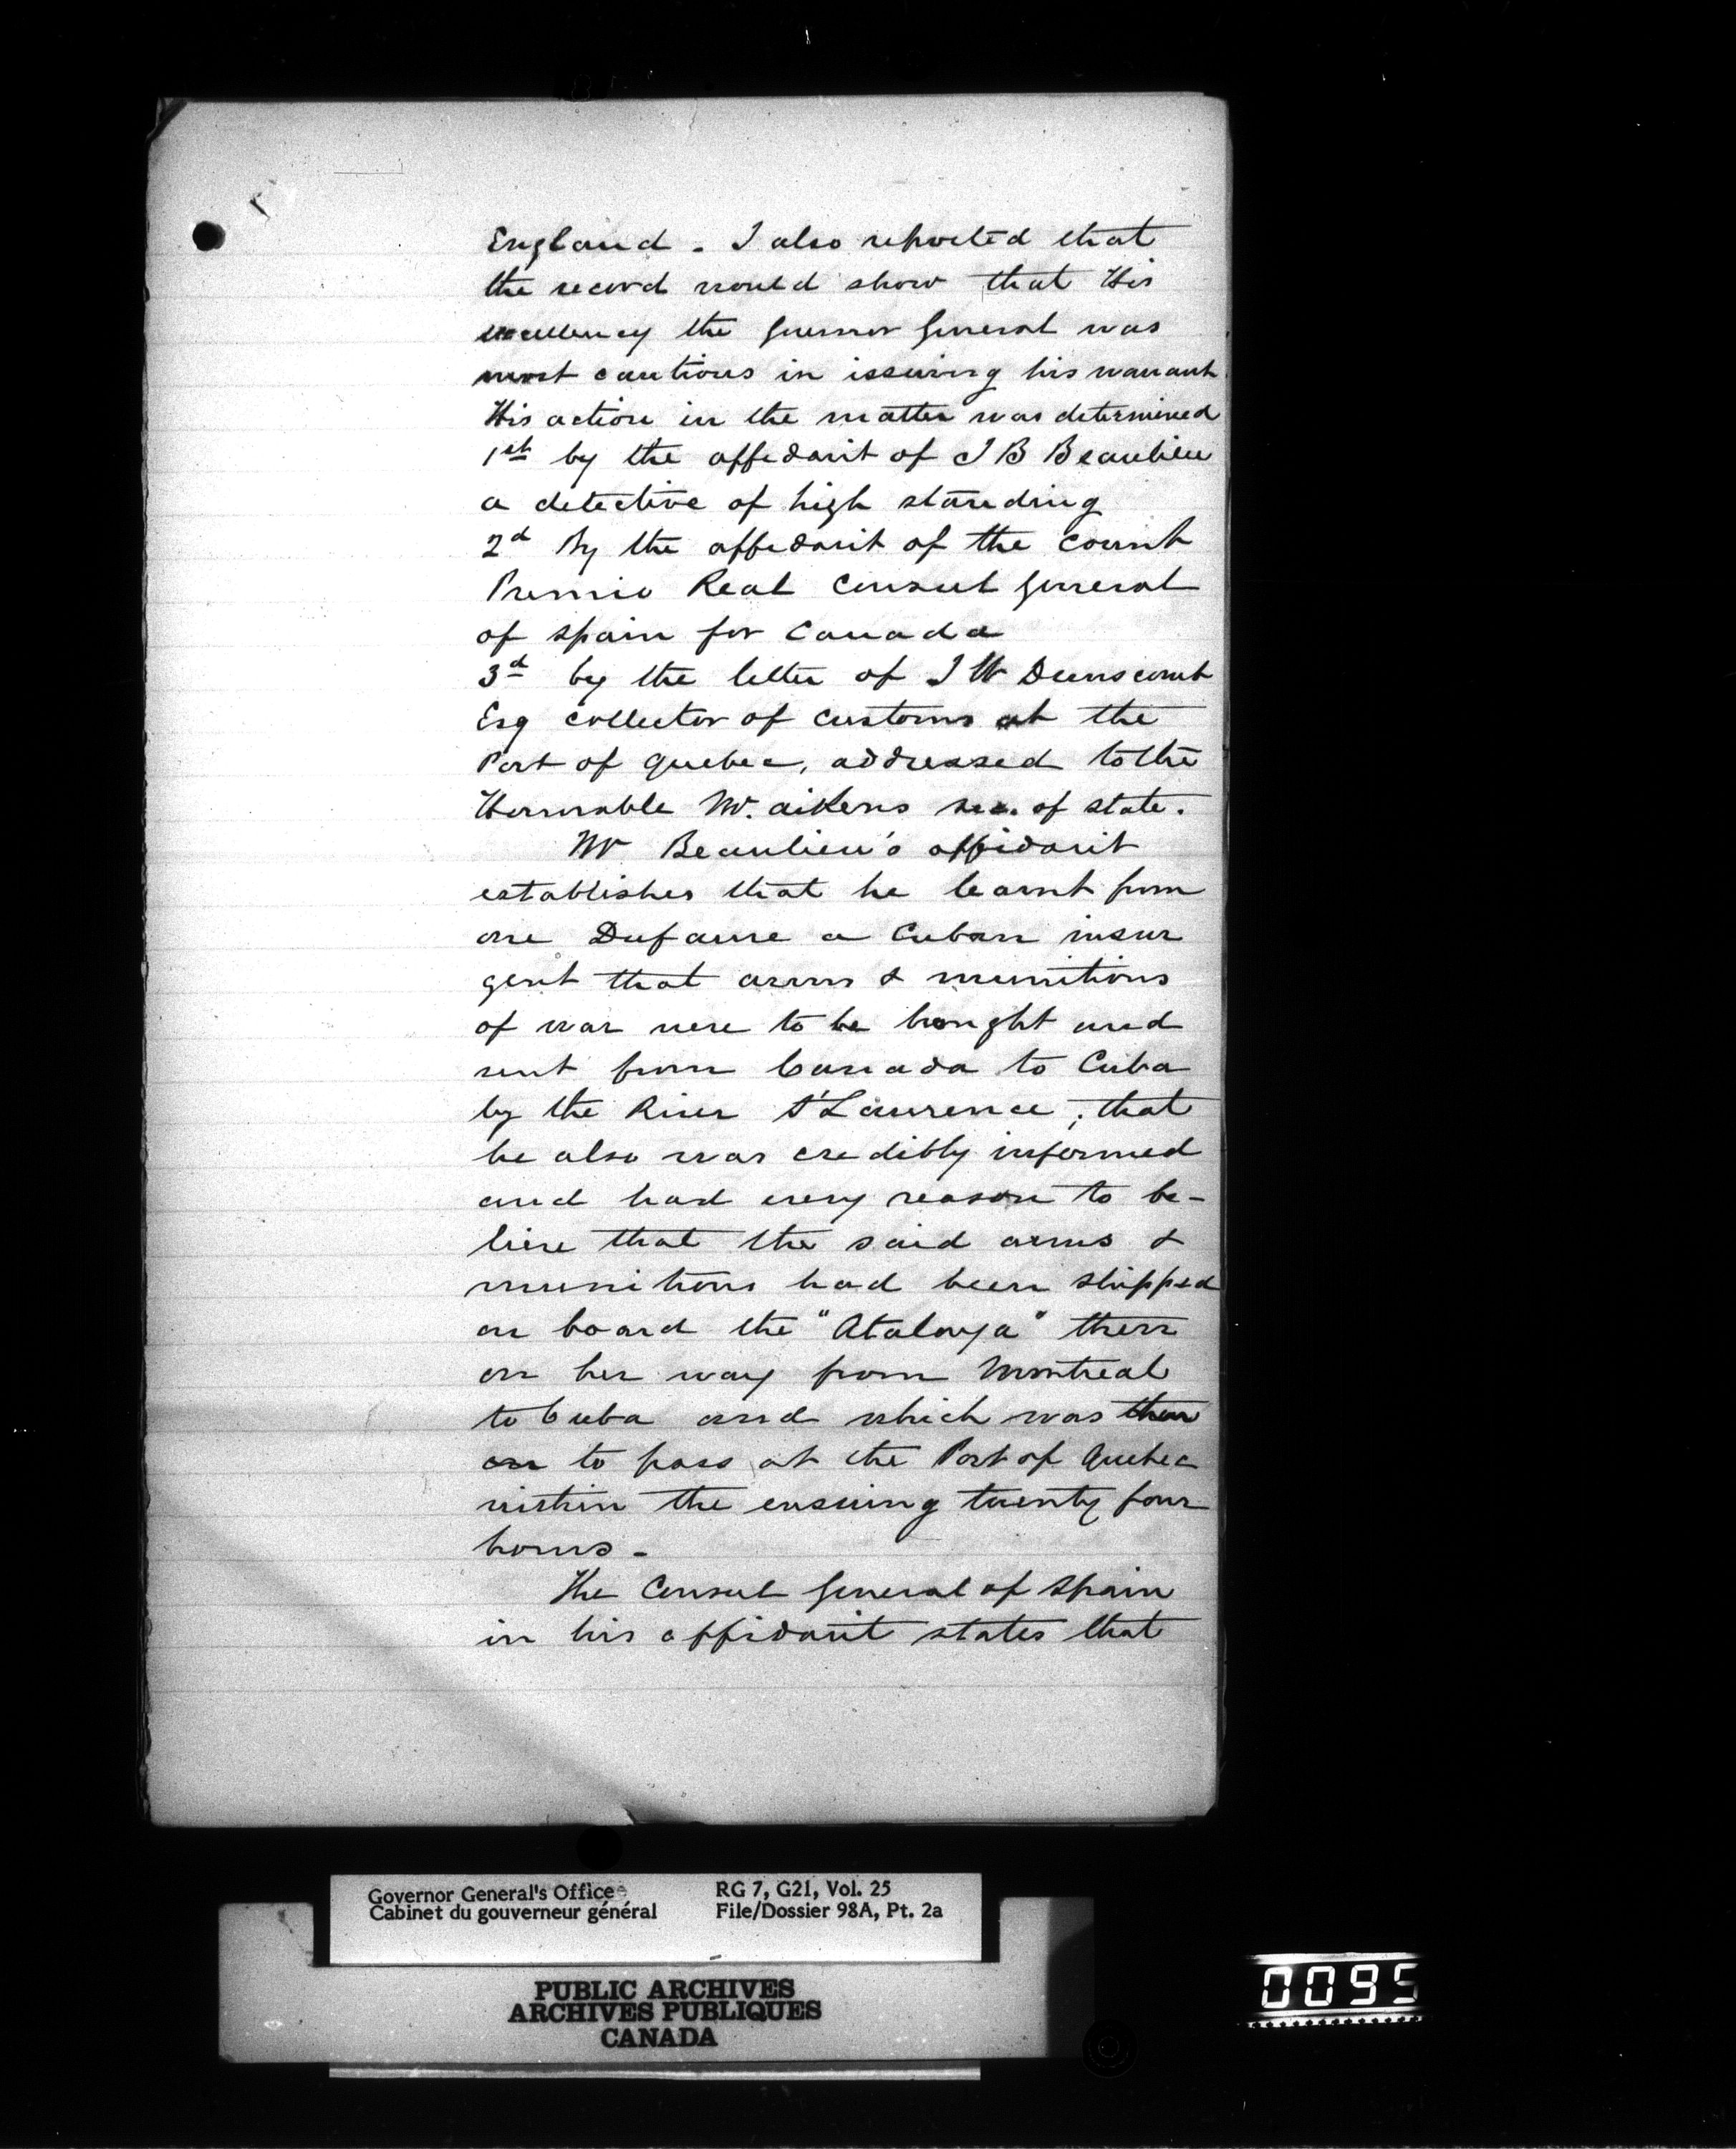 England. I also reported that
the record would show that His
excellency the Governor General was
most cautious in issuing his warrant.
His action in the matter was determined
1st by the affidavit of J B Beaulieu
a detective of high standing
2d By the affidavit of the Count
Premio Real Consul General
of Spain for Canada
3d by the letter of J W Dunscomb
Esq collector of customs at the
Port of Quebec, addressed to the
Honorable Mr. Aikens sec. of state.
Mr Beaulieu's affidavit
establishes that he learnt from
one Dufaure a Cuban insur
gent that arms & munitions
of war were to be bought and
sent from Canada to Cuba
by the River St Lawrence; that
he also was credibly informed
and had every reason to be-
lieve that the said arms &
munitions had been shipped
on board the "Atalaya" then
on her way from Montreal
to Cuba and which was then
on to pass at the Port of Quebec
within the ensuing twenty four
hours -
The Consul General of Spain
in his affidavit states that
Governor General's Office
Cabinet du gouverneur général
RG 7, G21, Vol. 25
File/Dossier 98A, Pt. 2a
PUBLIC ARCHIVES
ARCHIVES PUBLIQUES
CANADA
0095